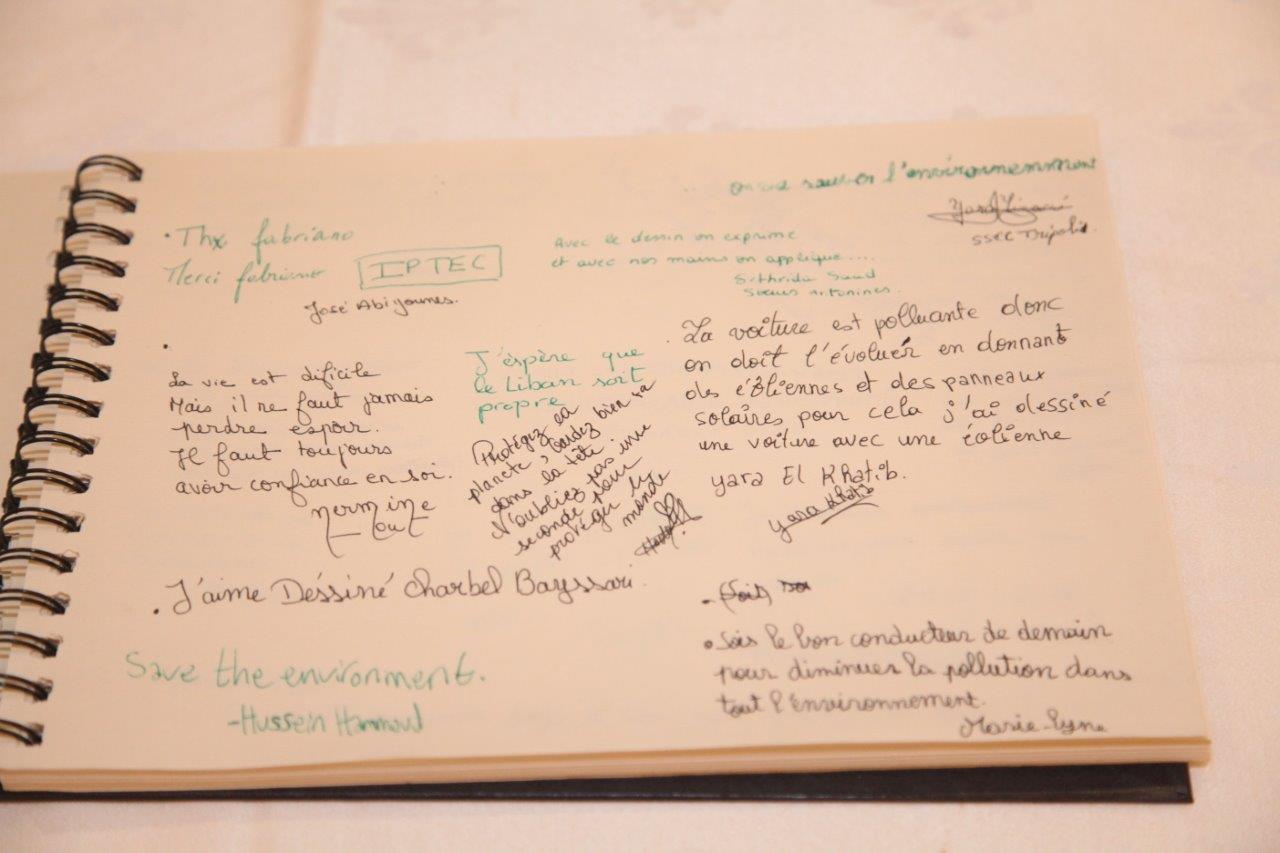 sauver l'environnemment
SSCC Tripoli.
• Thx fabriano
Merci fabriano IPTEC
José Abi Younes.
Avec le dessin on exprime
et avec nos mains on applique....
Saad
Sœurs Antonines.
La vie est dificile
Mais il ne faut jamais
perdre espoir.
Il faut toujours
avoir confiance en soi.
nermine
J'éspère que
le Liban soit
propre
Protégez la
planète, gardez bien sa
dans la tête
N'oubliez pas une
seconde pour
protéger le
monde
. La voiture est polluante donc
on doit l'évoluer en donnant
des éoliennes et des panneaux
solaires pour cela j'ai dessiné
une voiture avec une éolienne
yara El Khatib.
yara Khatib
• J'aime Déssiné Charbel Bayssari.
Save the environment.
-Hussein Hammoud
• Sois le bon conducteur de demain
pour diminuer la pollution dans
tout l'environnement.
Marie-lyne